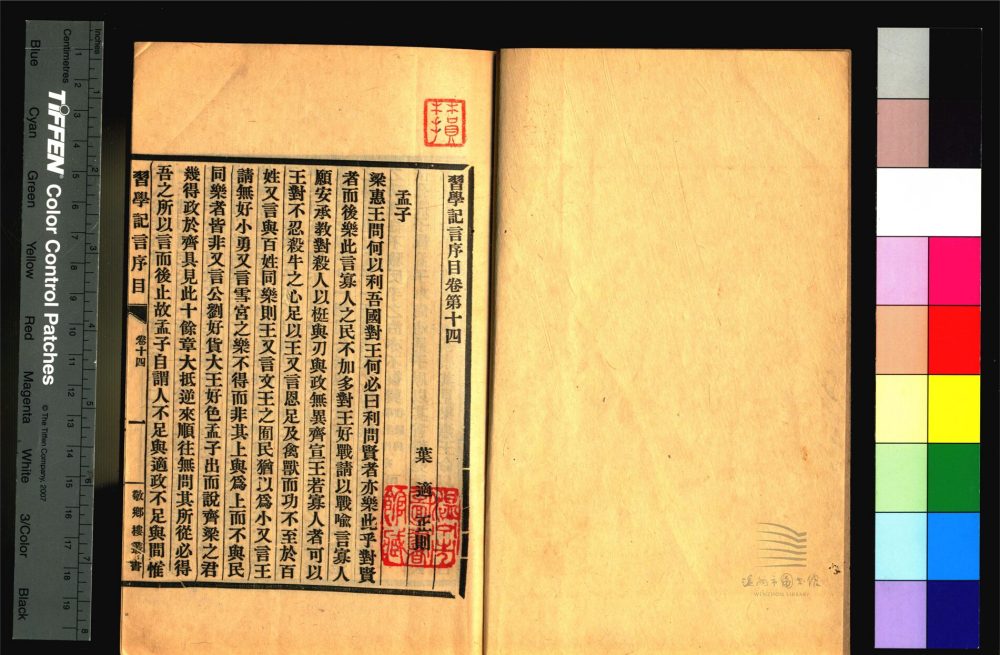 習學記言序目卷第十四
葉適 正則
孟子
梁惠王問何以利吾國對王何必曰利問賢者亦樂此乎對賢
者而後樂此言寡人之民不加多對王好戰請以戰喻言寡人
願安承教對殺人以梃與刃與政無異齊宣王若寡人者可以
王對不忍殺牛之心足以王又言恩足及禽獸而功不至於百
姓又言與百姓同樂則王又言文王之囿民猶以爲小又言王
請無好小勇又言雪宮之樂不得而非其上與爲上而不與民
同樂者皆非又言公劉好貨大王好色孟子出而說齊梁之君
幾得政於齊具見此十餘章大抵逆來順往無問其所從必得
吾之所以言而後止故孟子自謂人不足與適政不足與間惟
習學記言序目
卷十四
一
敬鄉樓叢書
溫州市圖書館藏
溫州市圖書館
WENZHOU LIBRARY
Inches
Centimetres
TIFFEN Color Control Patches
© The Tiffen Company, 2007
Blue
Cyan
Green
Yellow
Red
Magenta
White
3/Color
Black
1
2
3
4
5
6
7
8
1
2
3
4
5
6
7
8
9
10
11
12
13
14
15
16
17
18
19